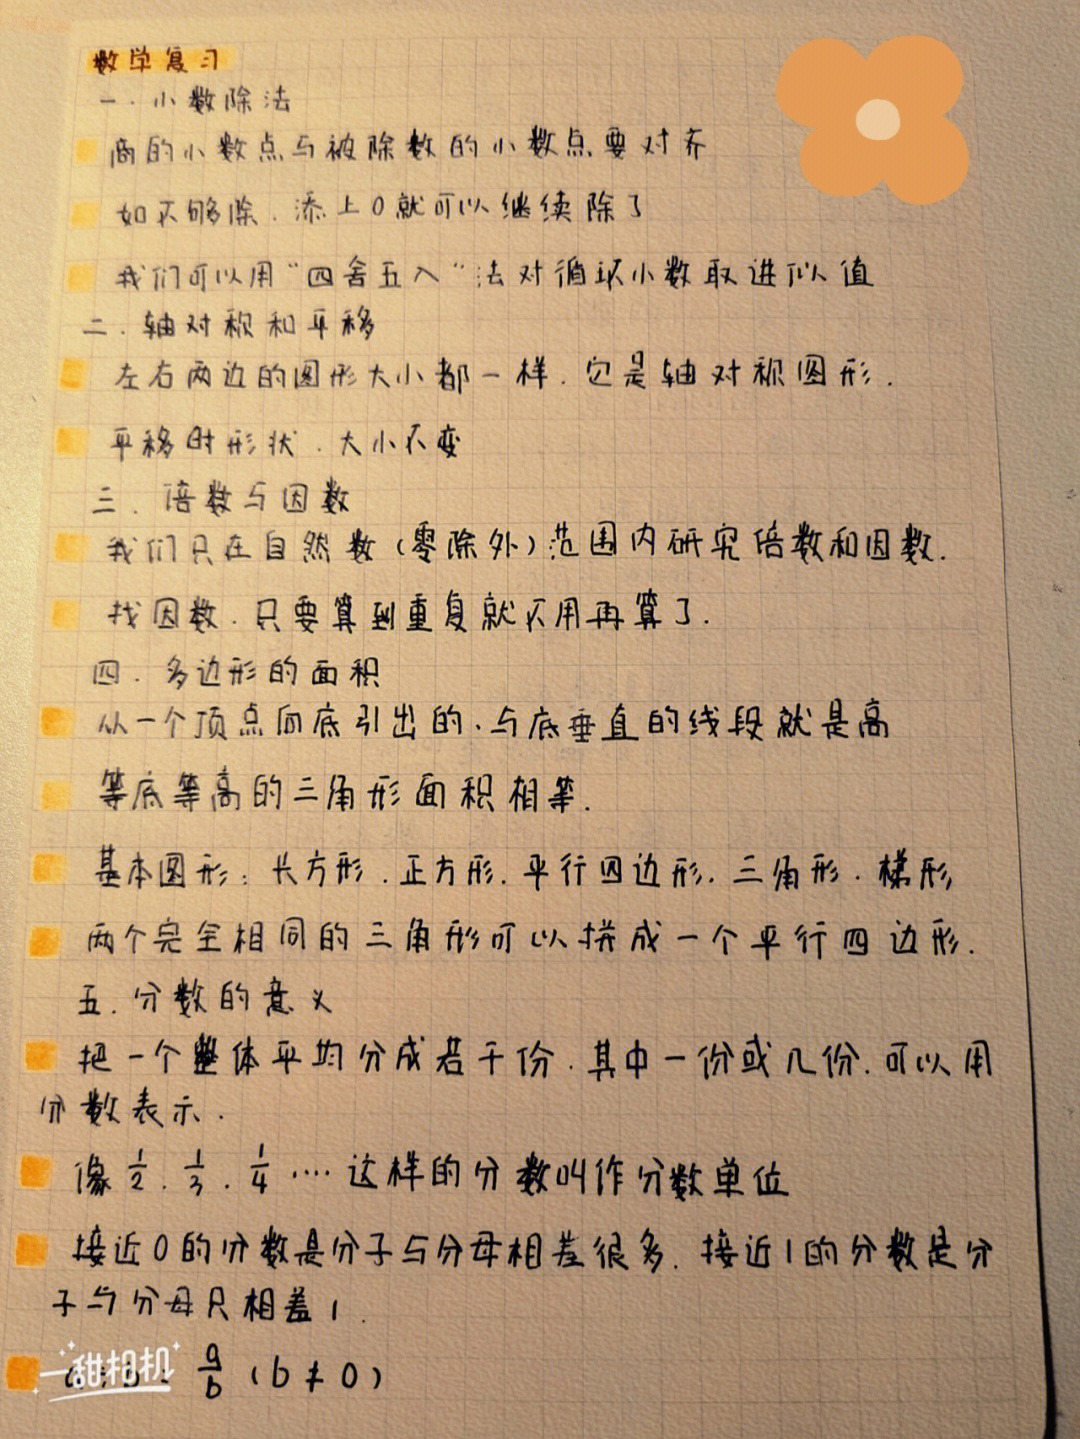 数学复习
一.小数除法
商的小数点与被除数的小数点要对齐
如不够除.添上0就可以继续除了
我们可以用“四舍五入”法对循环小数取进似值
二.轴对称和平移
左右两边的图形大小都一样.它是轴对称图形.
平移时形状.大小不变
三.倍数与因数
我们只在自然数(零除外)范围内研究倍数和因数.
找因数.只要算到重复就不用再算了.
四.多边形的面积
从一个顶点向底引出的.与底垂直的线段就是高
等底等高的三角形面积相等.
基本图形:长方形.正方形.平行四边形.三角形.梯形
两个完全相同的三角形可以拼成一个平行四边形.
五.分数的意义
把一个整体平均分成若干份.其中一份或几份.可以用
分数表示.
像1/2.1/3.1/4····这样的分数叫作分数单位
接近0的分数是分子与分母相差很多.接近1的分数是分
子与分母只相差1.
a÷b=a/b(b≠0)
一甜相机